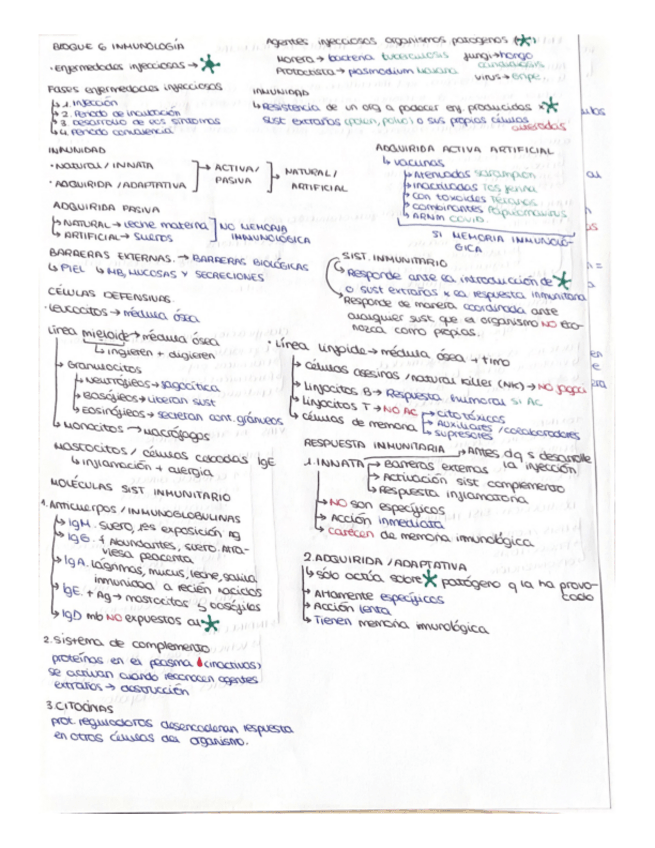 BLOQUE 6 INMUNOLOGÍA
· enfermedades infecciosas →
Fases enfermedades infecciosas
↳ 1. Infección
↳ 2. Período de incubación
↳ 3. Desarrollo de los síntomas
↳ 4. Período convalencia
Agentes infecciosos organismos patógenos ( )
Monera → bacteria tuberculosis fungi → hongo candidiasis
Protoctista → plasmodium malaria
virus → gripe
INMUNIDAD
↳ Resistencia de un org a padecer enf producidas x
sust extrañas (polen, polvo) o sus propias células
alteradas
INMUNIDAD
· NATURAL / INNATA
· ADQUIRIDA / ADAPTATIVA
→ ACTIVA / PASIVA
→ NATURAL / ARTIFICIAL
ADQUIRIDA PASIVA
↳ NATURAL → leche materna
↳ ARTIFICIAL → sueros
NO MEMORIA INMUNOLÓGICA
ADQUIRIDA ACTIVA ARTIFICIAL
↳ vacunas
↳ Atenuadas sarampión
↳ inactivadas Tos ferina
↳ con toxoides Tétanos
↳ combinantes Papilomavirus
↳ ARNm COVID
SI MEMORIA INMUNOLÓ-
GICA
BARRERAS EXTERNAS → BARRERAS BIOLÓGICAS
↳ PIEL ↳ MB, MUCOSAS Y SECRECIONES
SIST. INMUNITARIO
↳ Responde ante la introducción de
o sust extrañas x la respuesta inmunitaria
↳ Responde de manera coordinada ante
cualquier sust que el organismo NO
nozca como propias.
CÉLULAS DEFENSIVAS
· Leucocitos → médula ósea
Línea mieloide → médula ósea
↳ ingieren + digieren
↳ Granulocitos
↳ Neutrófilos → fagocítica
↳ Basófilos → liberan sust
↳ Eosinófilos → secretan cont. gránulos
↳ Monocitos → macrófagos
Mastocitos / células cebadas IgE
↳ inflamación + alergia
· Línea linfoide → médula ósea + timo
↳ células asesinas / natural killer (NK) → NO fagoci
↳ Linfocitos B → Respuesta humoral SI AC
↳ Linfocitos T → NO AC
↳ citotóxicos
↳ Auxiliares / colaboradores
↳ supresores
↳ células de memoria
MOLÉCULAS SIST INMUNITARIO
1. Anticuerpos / INMUNOGLOBULINAS
↳ IgM. suero, 1es exposición Ag
↳ IgG. + Abundantes, suero. Atra-
viesa placenta
↳ IgA. Lágrimas, mucus, leche, saliva,
inmunidad a recién nacidos
↳ IgE. + Ag → mastocitos y basófilos
↳ IgD mb NO expuestos al
2. Sistema de complemento
proteínas en el plasma (inactivas)
se activan cuando reconocen agentes
extraños → destrucción
3. CITOCINAS
prot. reguladoras desencadenan respuesta
en otras células del organismo.
RESPUESTA INMUNITARIA
→ Antes dq s desarrolle
la infección
1. INNATA
→ Barreras externas
↳ Activación sist. complemento
↳ Respuesta inflamatoria
↳ NO son específicos
↳ Acción inmediata
↳ carecen de memoria inmunológica
2. ADQUIRIDA / ADAPTATIVA
↳ sólo actúa sobre patógeno q la ha provo-
cado
↳ Altamente específicos
↳ Acción lenta
↳ Tienen memoria inmunológica